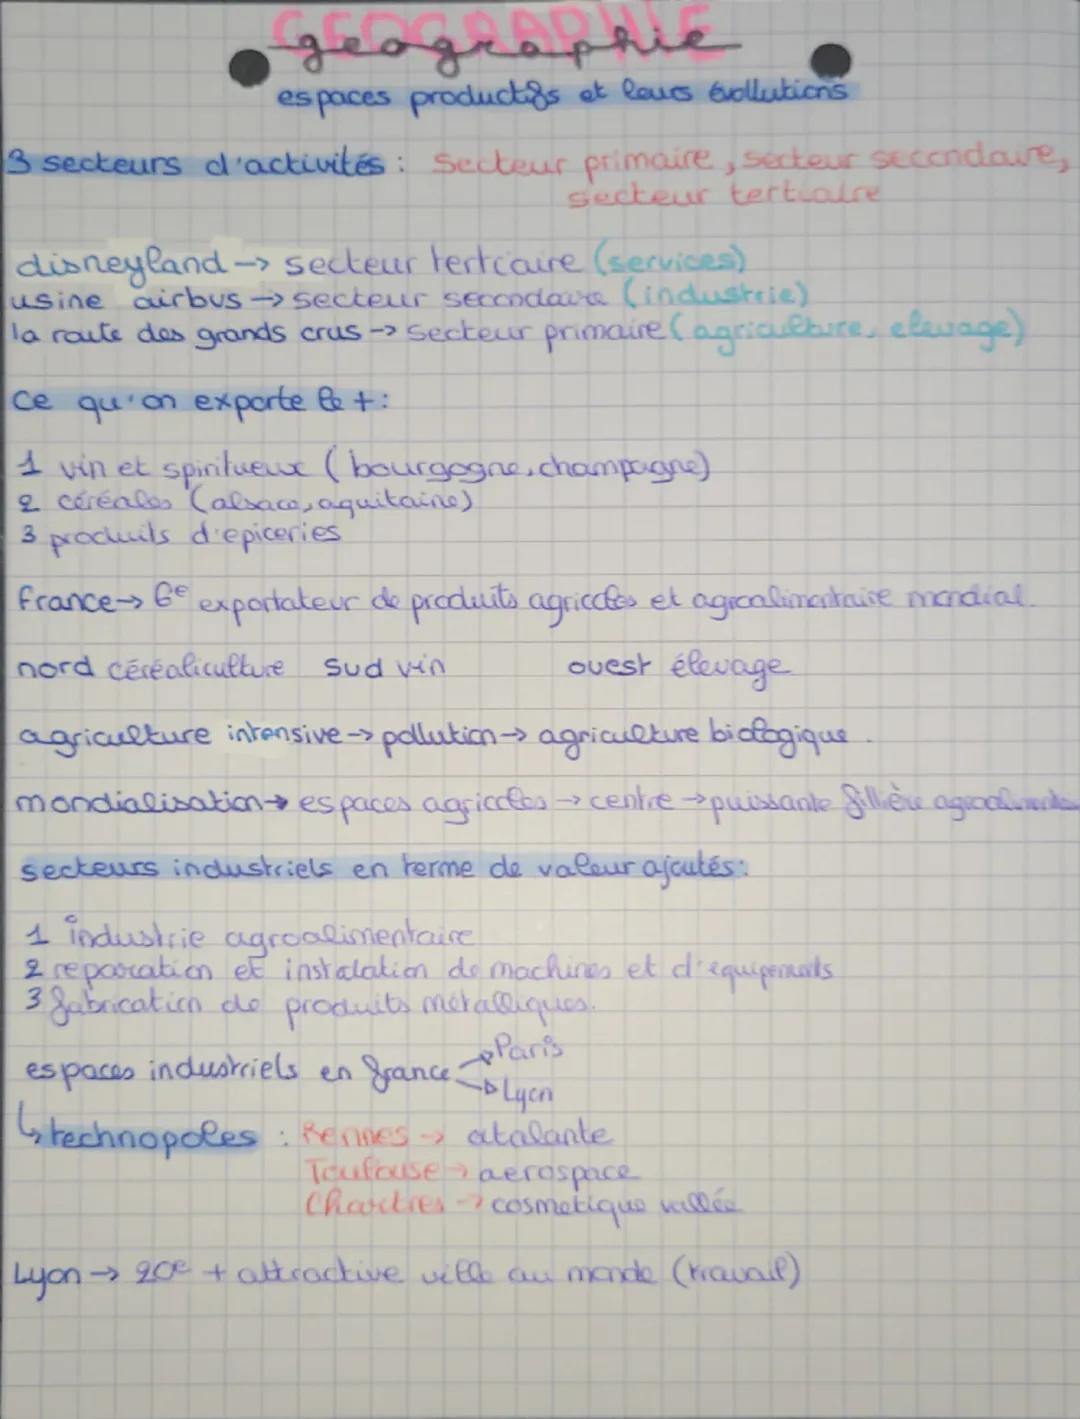 GEOGRAPHIE
geographie
espaces productifs et leurs évollutions
3 secteurs d'activités : Secteur primaire, secteur secondaire,
secteur tertiaire
disneyland → secteur tertiaire (services)
usine airbus → secteur secondaire (industrie)
la route des grands crus → secteur primaire (agriculture, elevage)
Ce qu'on exporte le + :
1 vin et spiritueux (bourgogne, champagne)
2 céréales (alsace, aquitaine)
3 produits d'epiceries
france → 6e exportateur de produits agricoles et agroalimentaire mondial.
nord céréaliculture sud vin ouest élevage
agriculture intensive → pollution → agriculture biologique.
mondialisation → espaces agricoles → centre → puissante fillière
secteurs industriels en terme de valeur ajoutés :
1 industrie agroalimentaire
2 reparation et instalation de machines et d'équipements
3 fabrication de produits métalliques.
espaces industriels en france → Paris
→ Lyon
↳ technopoles : Rennes → atalante
Toulouse → aerospace
Chartres → cosmetique vallée
Lyon → 20e + attractive ville au monde (travail)